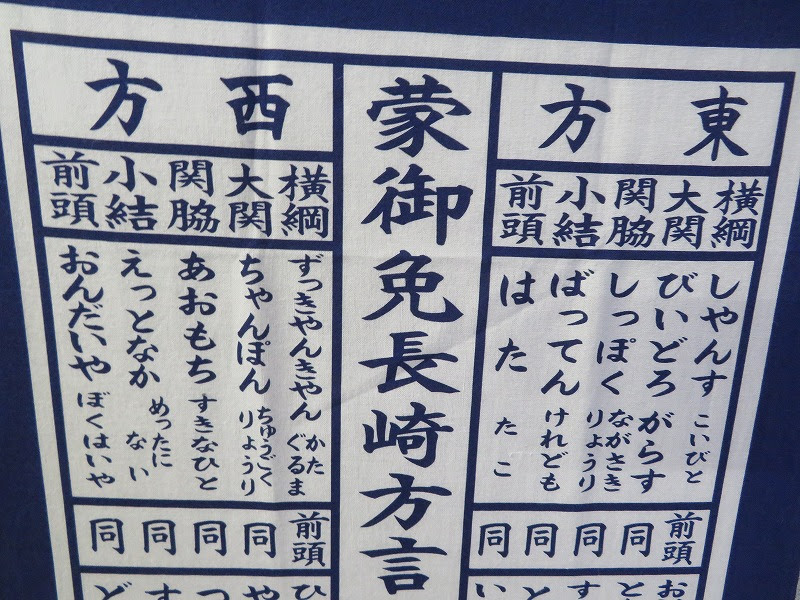 東方
横綱
大関
関脇
小結
前頭
しやんす こいびと
びいどろ がらす
しっぽく ながさきりょうり
ばってん けれども
はた たこ
前頭
同
同
同
同
蒙御免長崎方言
西方
横綱
大関
関脇
小結
前頭
ずっきやんきやん かたぐるま
ちゃんぽん ちゅうごくりょうり
あおもち すきなひと
えっとなか めったにない
おんだいや ぼくはいや
前頭
同
同
同
同